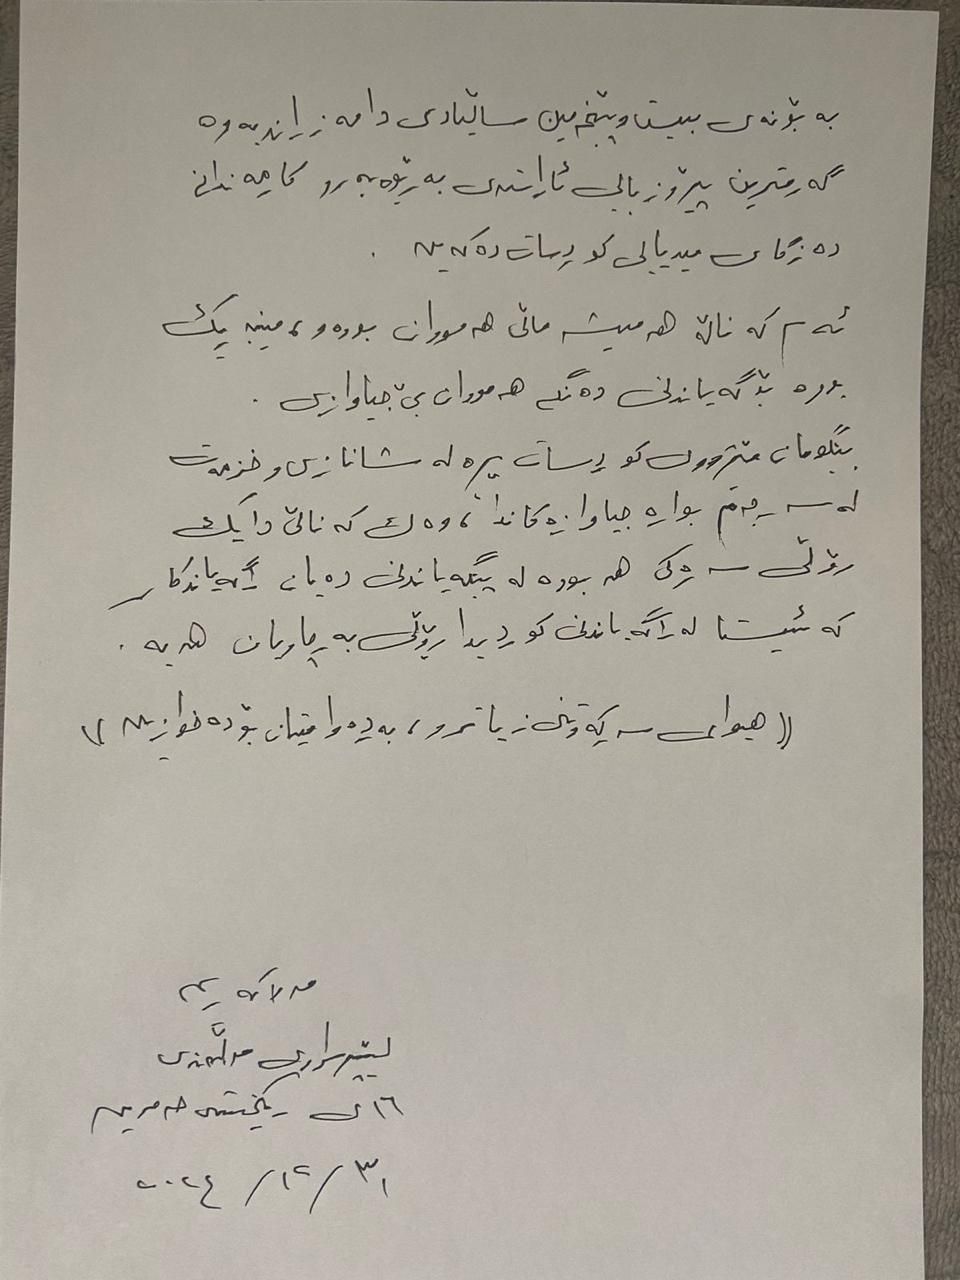 بە بۆنەی بیست وپێنج مین ساڵیادی دامەزراندنەوە
گەرمترین پیرۆزبایی ئاراستەی بەڕێوەبەرو کارمەندانی
دەزگای میدیایی کوردسات دەکەین .
ئەم کەناڵە هەمیشە ماڵی هەمووان بووە و مینبەرێک
بووە بۆ گەیاندنی دەنگی هەمووان بێ جیاوازی .
بێگومان مێژووی کوردسات پڕە لە شانازی و خزمەت
لەسەرجەم بوارە جیاوازەکاندا، وەک کەناڵێ دایک
ڕۆڵی سەرەکی هەبووە لە پێگەیاندنی دەیان ڕاگەیاندکار
کە ئێستا لە ڕاگەیاندنی کوردیدا ڕۆڵی بەرچاویان هەیە .
(( هیوای سەرکەوتنی زیاتر و، بەردەوامیتان بۆ دەخوازین ))
مەلا کەریم
لێپرسراوی مەڵبەندی
١٦ی ڕێکخستنی حەمرین
٣١ / ١٢ / ٢٠٢٤